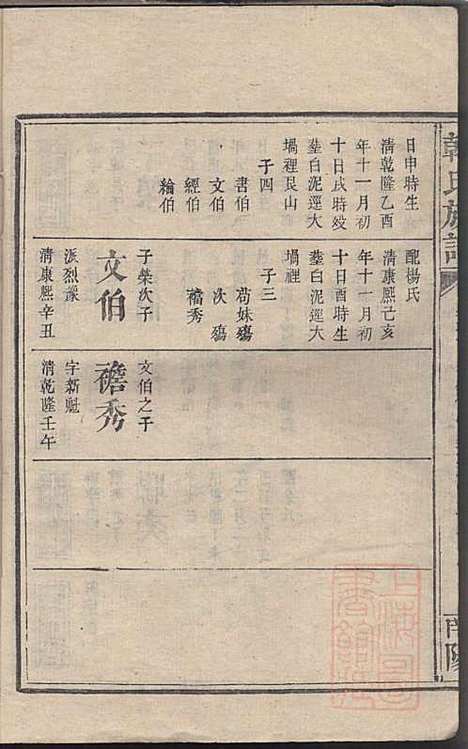 韓氏族譜
日申時生
清乾隆乙酉
年十一月初
十日戌時歿
塟白泥逕大
塌裡艮山
子四
書伯
文伯
經伯
繪伯
配楊氏
清康熙己亥
年十一月初
十日酉時生
塟白泥逕大
塌裡
子三
苟妹殤
次殤
襘秀
文伯
子榮次子
派烈豫
清康熙辛丑
襘秀
文伯之子
字新魁
清乾隆壬午
上海圖
書館藏